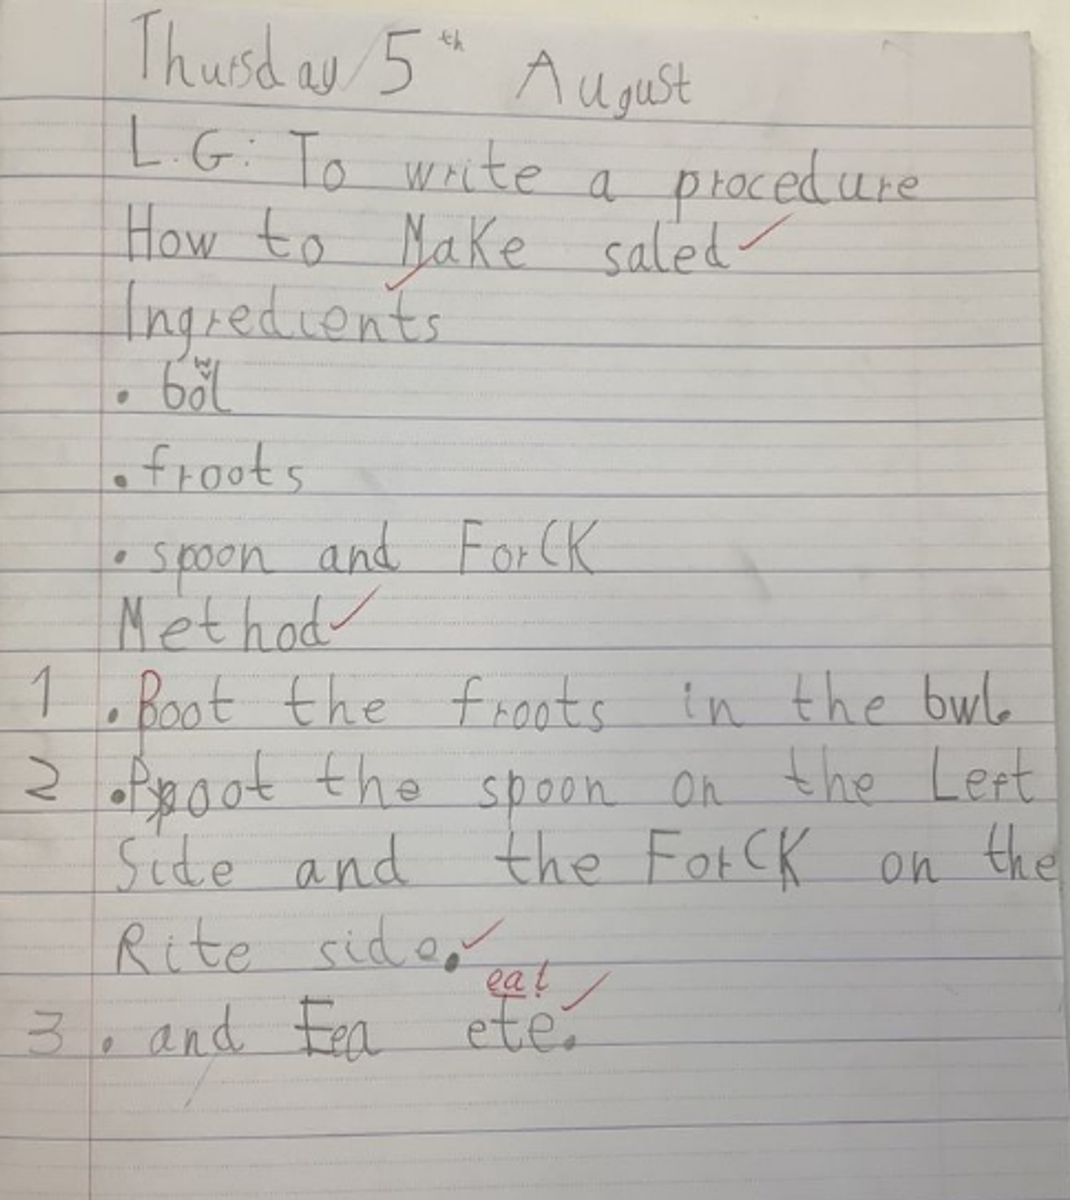 Thursday 5th August
L.G: To write a procedure
How to Make saled
Ingredients
. bowl
. froots
. spoon and ForCK
Method
1 . Boot the froots in the bwl.
2 . Ppoot the spoon on the Left
Side and the ForCK on the
Rite side.
eat
3 . and Eea ete.